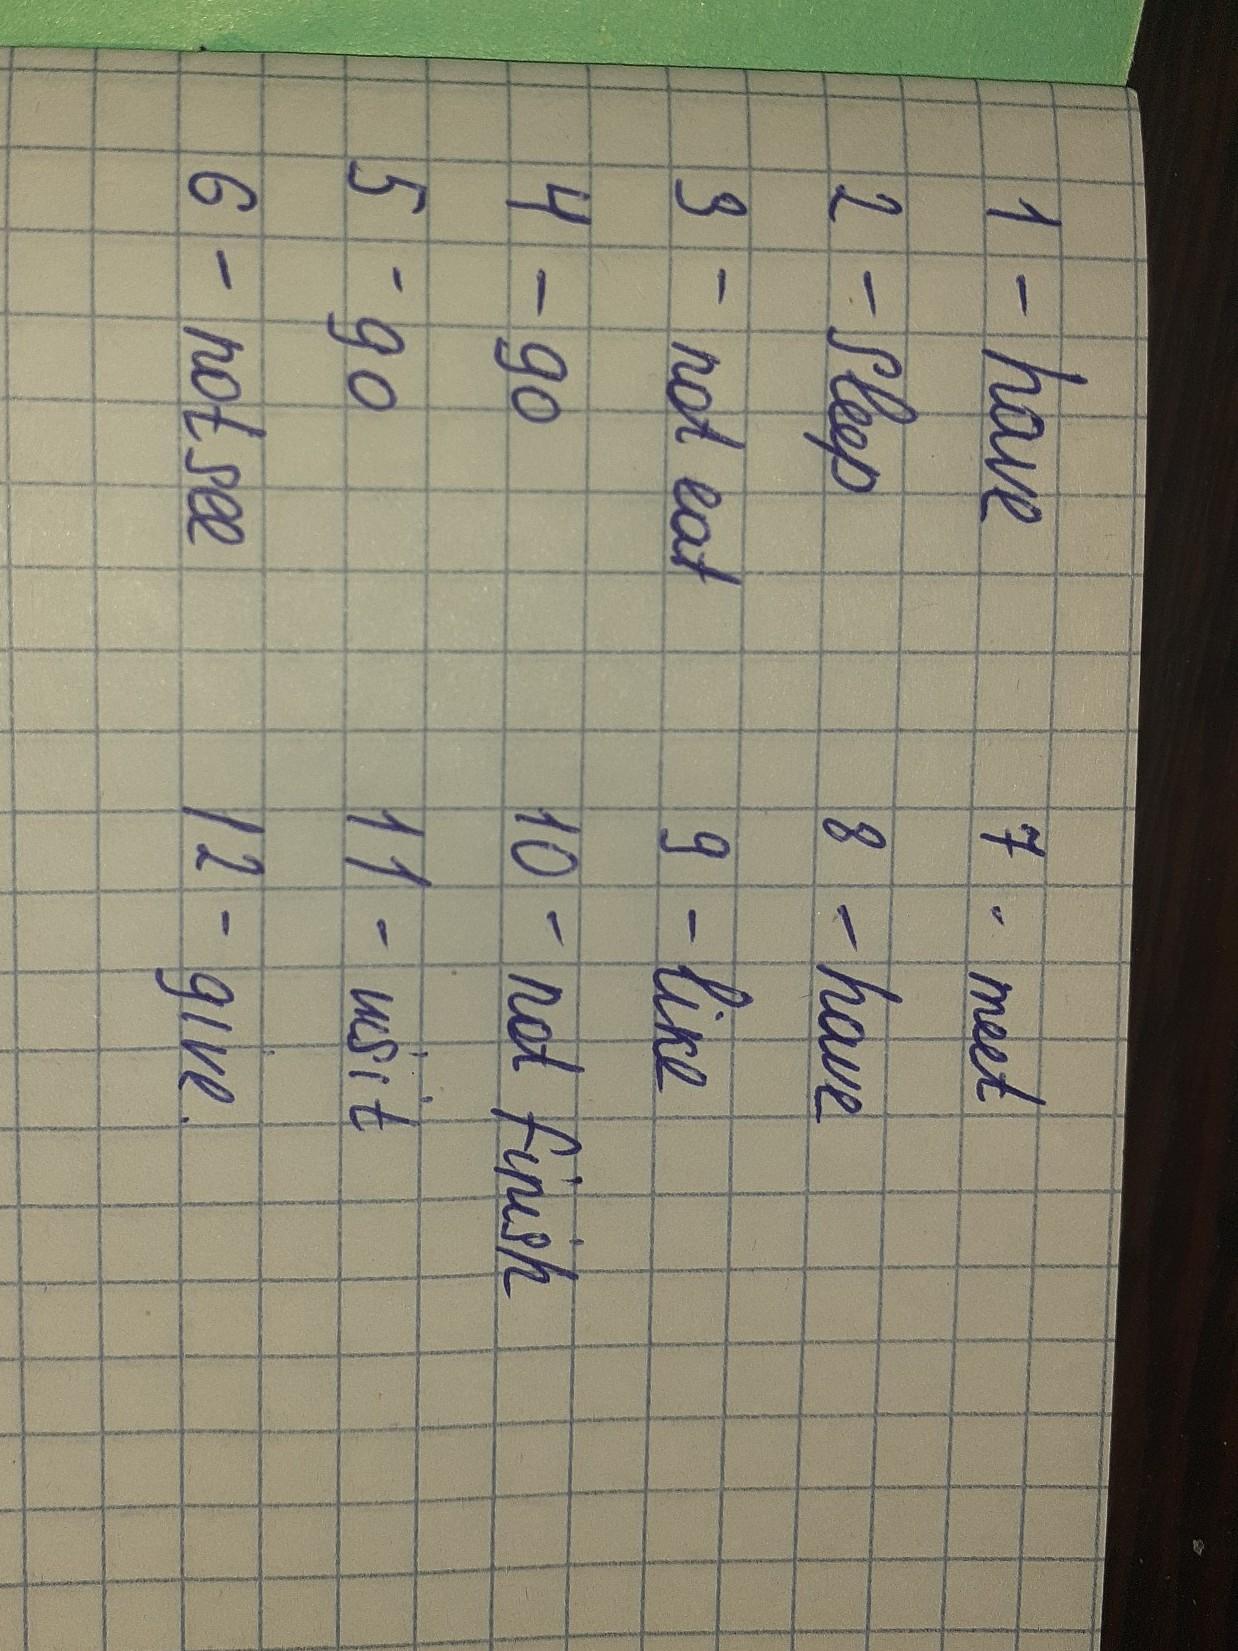 1 - have
2 - sleep
3 - not eat
4 - go
5 - go
6 - not see
7 - meet
8 - have
9 - like
10 - not finish
11 - visit
12 - give.